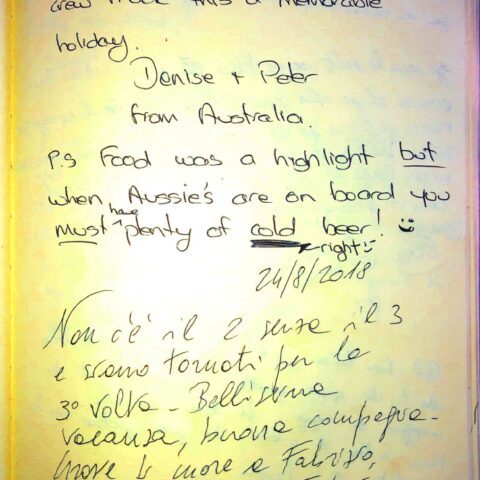 crew made this a memorable
holiday.
Denise + Peter
from Australia.
P.S Food was a highlight but
when Aussie's are on board you
must have plenty of cold beer!
right
24/8/2018
Non c'è il 2 senza il 3
e siamo tornati per la
3° volta - Bellissima
vacanza, buona compagna-
a Fabrizio,